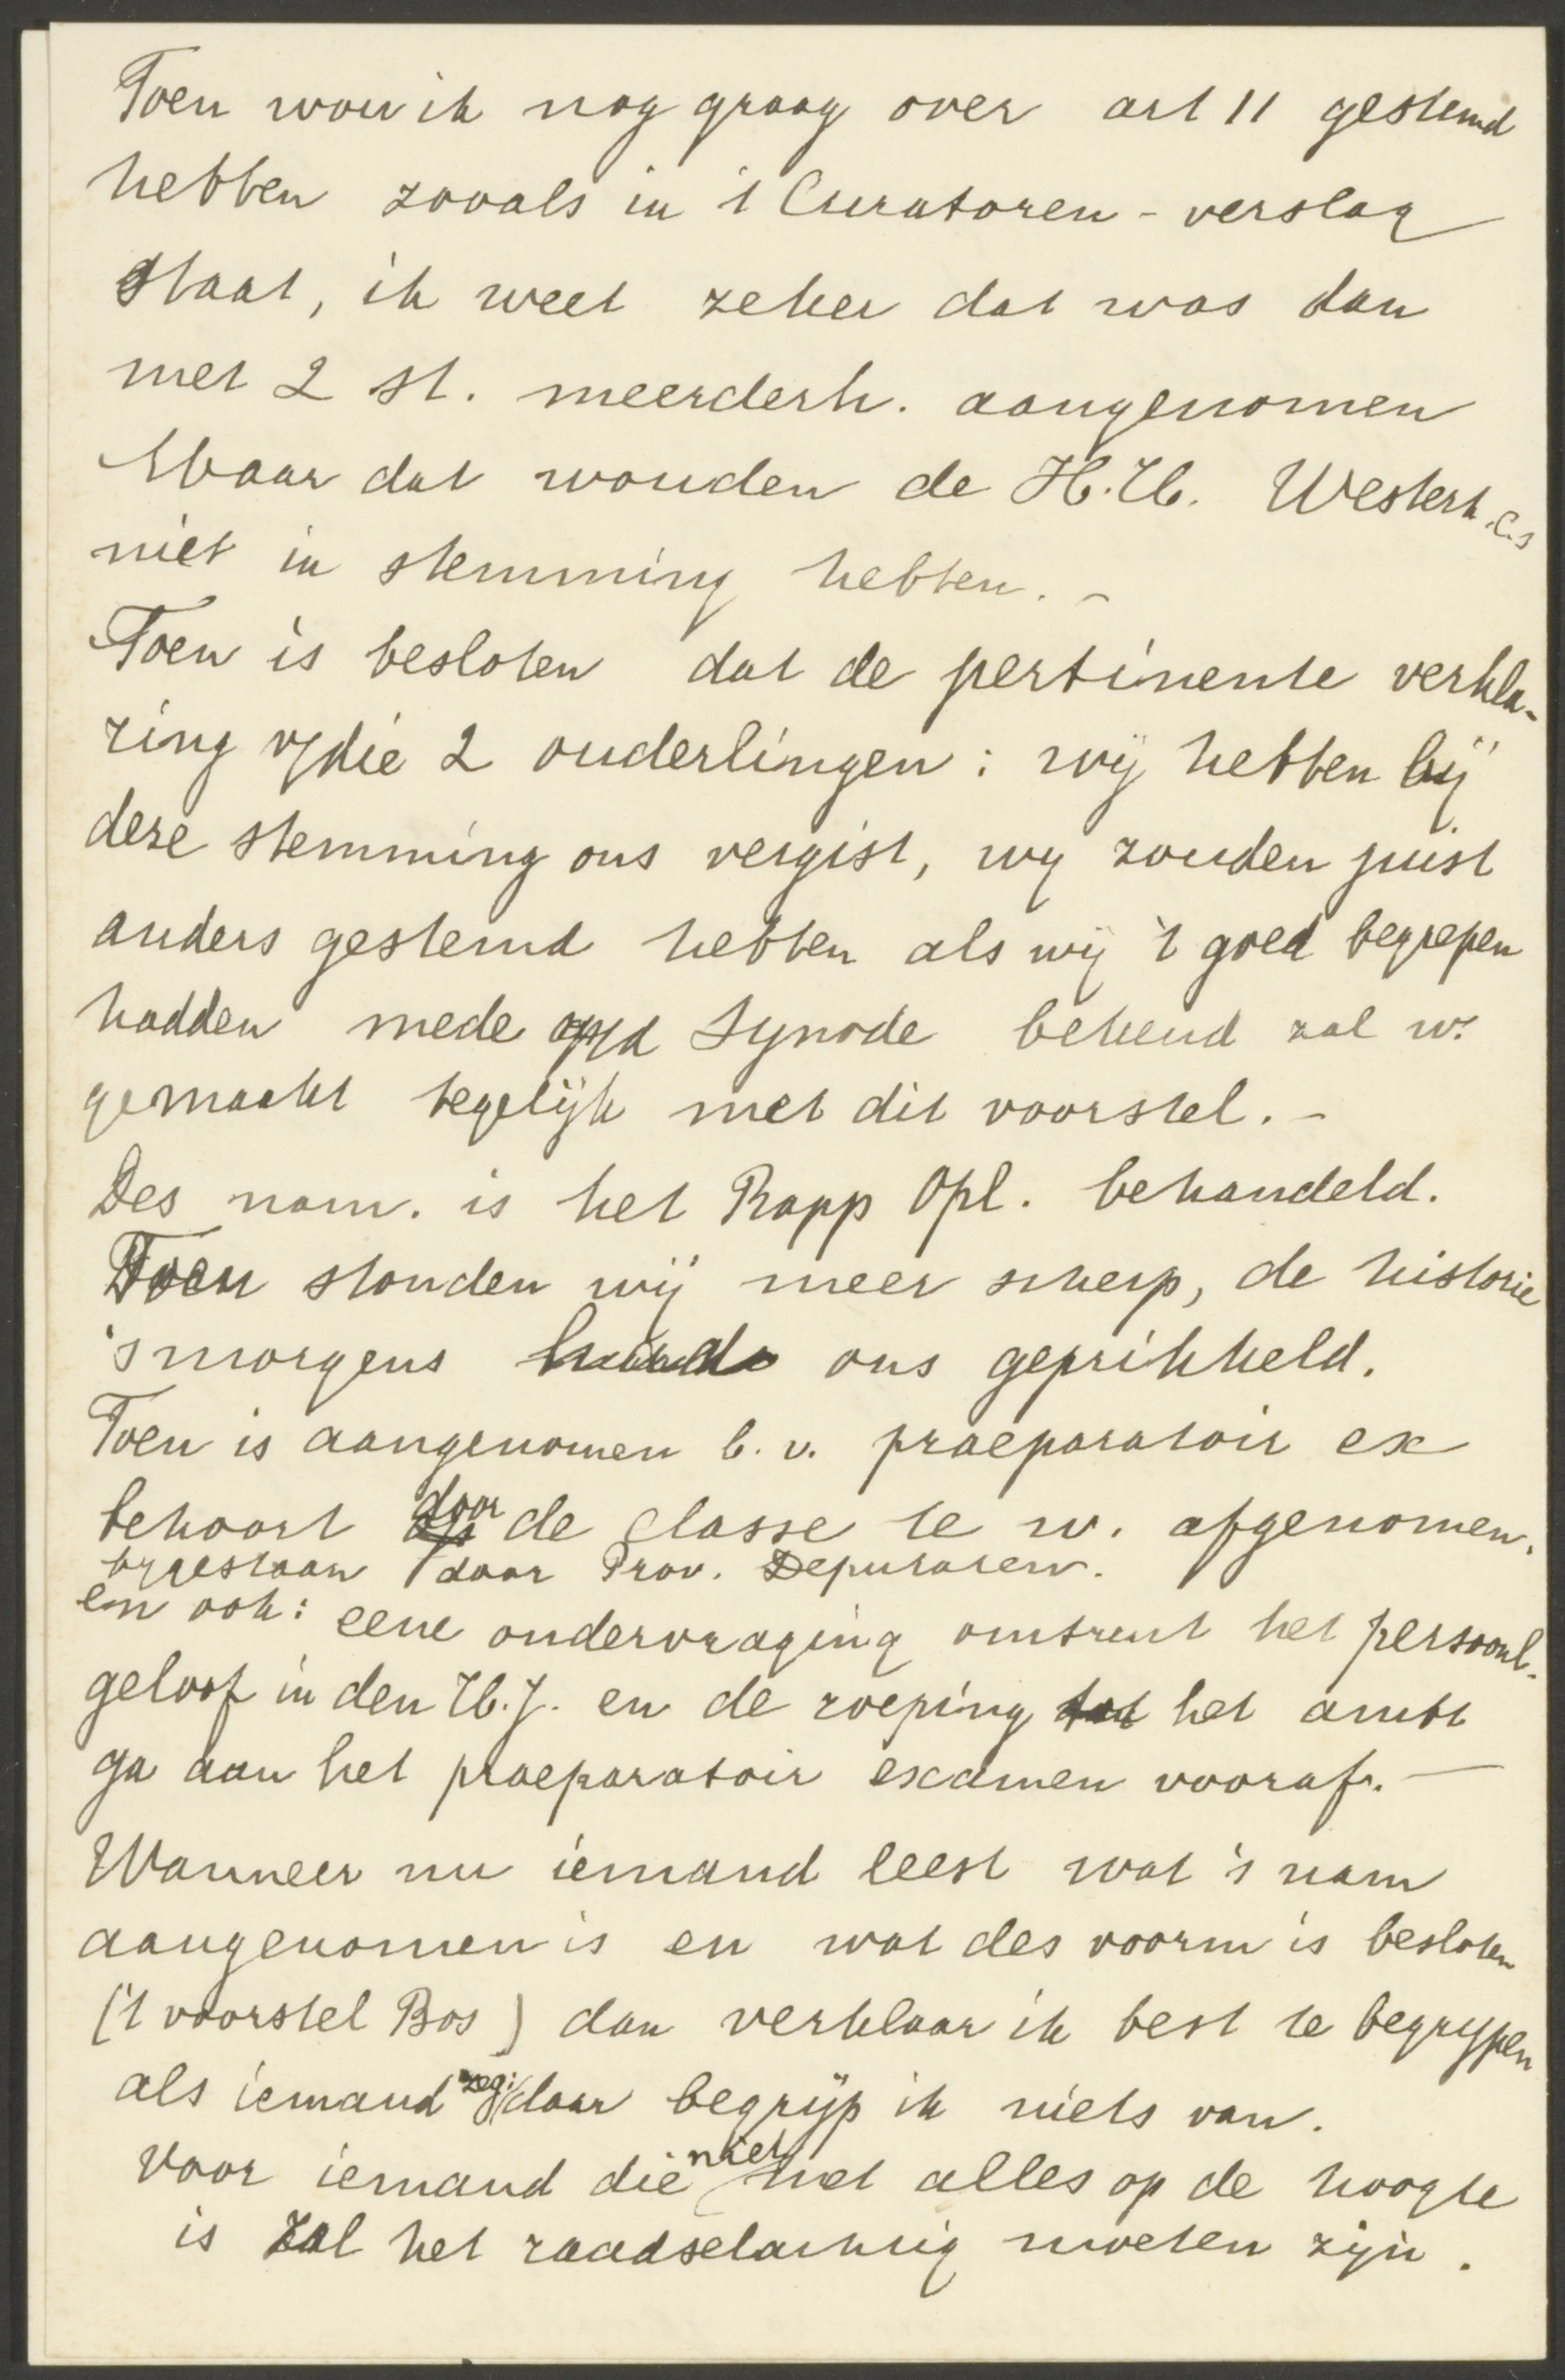 Toen wou ik nog graag over art 11 gestemd
hebben zooals in 't Curatoren - verslag
staat, ik weet zeker dat was dan
met 2 st. meerderh. aangenomen
Maar dat wouden de H.H. Westerh. c.s
niet in stemming hebben. -
Toen is besloten dat de pertinente verkla-
ring v/die 2 ouderlingen : wij hebben bij
deze stemming ons vergist, wy zouden juist
anders gestemd hebben als wij 't goed begrepen
hadden mede op/d Synode bekend zal w.
gemaakt tegelijk met dit voorstel. -
Des nam. is het Rapp Opl. behandeld.
Toen stonden wij meer scherp, de historie
's morgens ons geprikkeld.
Toen is aangenomen b. v. praeparatoir ex
behoort door de classe te w. afgenomen.
bygestaan door Prov. Deputaten.
en ook: eene ondervraging omtrent het persoonl.
geloof in den H.J. en de roeping tot het ambt
ga aan het praeparatoir examen vooraf. —
Wanneer nu iemand leest wat 's nam
aangenomen is en wat des voorm is besloten
('t voorstel Bos) dan verklaar ik best te begrypen
als iemand zegt: daar begrijp ik niets van.
Voor iemand die niet met alles op de hoogte
is zal het raadselachtig moeten zijn.